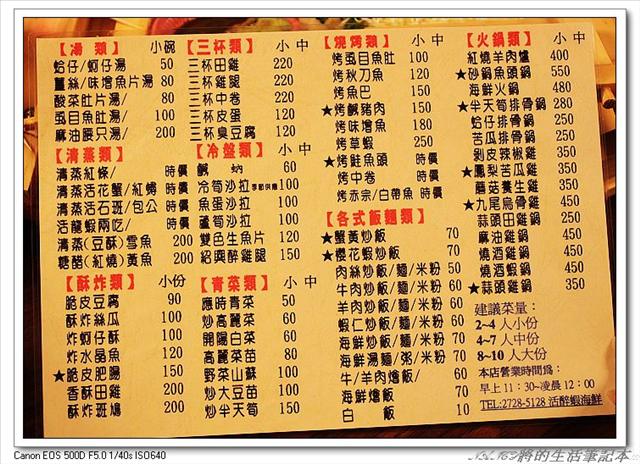 【湯類】 小碗
蛤仔/蚵仔湯 50
薑絲/味噌魚片湯 80
酸菜肚片湯/ 80
虱目魚肚湯/ 100
麻油腰只湯/ 200
【清蒸類】
清蒸紅條/ 時價
清蒸活花蟹/紅蟳 時價
清蒸活石斑/包公 時價
活龍蝦兩吃/ 時價
清蒸(豆酥)雪魚 200
糖醋(紅燒)黃魚 200
【酥炸類】 小份
脆皮豆腐 90
酥炸絲瓜 100
炸蚵仔酥 100
炸水晶魚 120
★脆皮肥腸 150
香酥田雞 200
酥炸斑鳩 200
【三杯類】 小 中
三杯田雞 220
三杯雞腿 220
三杯中卷 220
三杯皮蛋 120
三杯臭豆腐 120
【冷盤類】 小 中
鹹蚋 60
冷筍沙拉 季節供應 100
魚蛋沙拉 100
蘆筍沙拉 100
雙色生魚片 120
紹興醉雞腿 150
【青菜類】 小 中
應時青菜 50
炒高麗菜 60
開陽白菜 60
高麗菜苗 80
野菜山蘇 100
炒大豆苗 100
炒半天筍 150
【燒烤類】 小 中
烤虱目魚肚 100
烤秋刀魚 120
烤魚巴 150
★烤鹹豬肉 150
烤味噌魚 180
烤草蝦 250
★烤鮭魚頭 時價
烤中卷 時價
烤赤宗/白帶魚 時價
【各式飯麵類】
★蟹黃炒飯 70
★櫻花蝦炒飯 70
肉絲炒飯/麵/米粉 50
牛肉炒飯/麵/米粉 60
羊肉炒飯/麵/米粉 60
蝦仁炒飯/麵/米粉 60
海鮮炒飯/麵/米粉 60
海鮮湯麵/粥/米粉 70
牛/羊肉燴飯/ 60
海鮮燴飯 70
白飯 10
【火鍋類】 小 中
紅燒羊肉爐 400
★砂鍋魚頭鍋 550
海鮮火鍋 480
★半天筍排骨鍋 280
蛤仔排骨鍋 250
苦瓜排骨鍋 250
剝皮辣椒雞 350
★鳳梨苦瓜雞 350
蘑菇養生雞 350
★九尾烏骨雞 450
蒜頭田雞鍋 350
麻油雞鍋 350
燒酒雞鍋 350
燒酒蝦鍋 350
★蒜頭雞鍋 350
建議菜量：
2~4 人小份
4~7 人中份
8~10 人大份
本店營業時間為：
早上11：30~凌晨12：00
TEL:2728-5128 活醉蝦海鮮
Canon EOS 500D F5.0 1/40s ISO640
將的生活筆記本